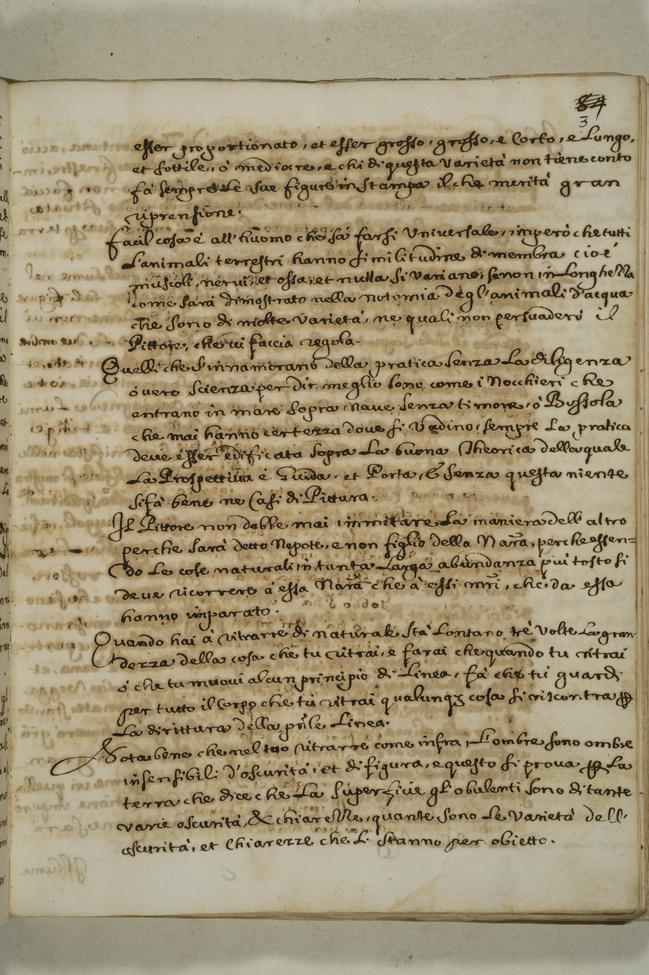 84
3
esser proportionato, et esser grosso, grosso, e Corto, e Lungo,
et sottile, ò mediocre, e chi di questa varietà non tiene conto
fà sempre le sue figure in stampa il che merità gran
riprensione.
facil cosa è all'huomo che sà farsi Universale, imperò che tutti
L'animali terrestri hanno similitudine di membra cioè
muscoli, nervi, et ossa, et nulla si variano, se non in Longhezza
come sarà dimostrato nella notomia degl'animali d'acqua
che sono di molte varietà, ne quali non persuaderò il
Pittore, che vi faccia regola.
Quelli che s'innamorano della pratica senza La diligenza
ò vero scienza per dir meglio sono come i Nocchieri che
entrano in mare sopra Nave senza timone, ò Bussola
che mai hanno certezza dove si Vadino, sempre La pratica
deve esser edificata sopra La buona Theorica della quale
La Prospettiva è Guida, et Porta, & senza questa niente
si fà bene ne Casi di Pittura.
Il Pittore non debbe mai immitare La maniera dell'altro
perche sarà detto Nepote, e non figlio della Narã, perche essen=
do Le cose naturali in tanta Larga abundanza più tosto si
deve ricorrere à essa Narã che à essi mrĩ, che da essa
hanno imparato.
Quando hai à ritrarre di naturale stà Lontano trè Volte La gran
dezza della cosa che tu ritrai, e farai che quando tu ritrai
ò che tu muovi alcun principio di Linea, fà che tù guardi
per tutto il corpo che tù ritrai qualunq3 cosa si riscontra ꝑ
La dirittura della prĩle Linea.
Nota bene che nel tuo ritrarre come infra, L'ombre sono ombre
insensibili d'oscurità, et di figura, e questo si prova ꝑ La
terza che dice che La superficie gl'obulenti sono di tante
varie oscurità, & chiarezze, quante sono Le varietà dell'
oscurità, et Chiarezze che Li stanno per obietto.